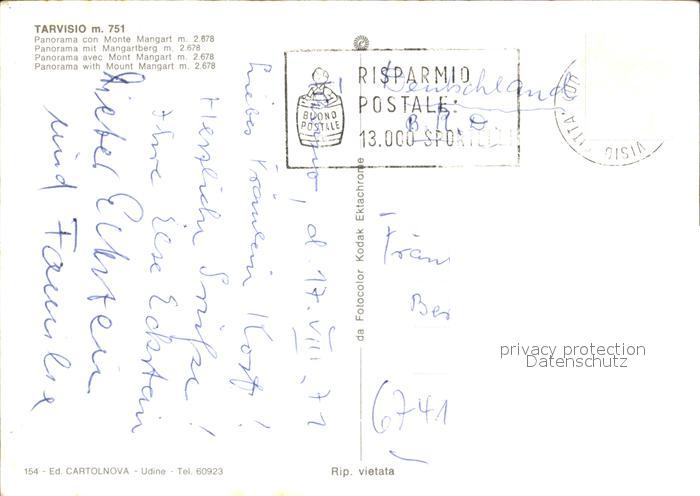 TARVISIO m. 751
Panorama con Monte Mangart m. 2.678
Panorama mit Mangartberg m. 2.678
Panorama avec Mont Mangart m. 2.678
Panorama with Mount Mangart m. 2.678
BUONO POSTALE
RISPARMIO
POSTALE:
13.000 SPORTELLI
Deutschland
B R D
VISIO
d. 17. VIII. 71
Liebes Fräulein Kopf!
Herzliche Grüße!
Ihre Else Eckstein
Dieter Eckstein
und Familie
da Fotocolor Kodak Ektachrome
Fräu
6741
privacy protection
Datenschutz
154 - Ed. CARTOLNOVA - Udine - Tel. 60923
Rip. vietata